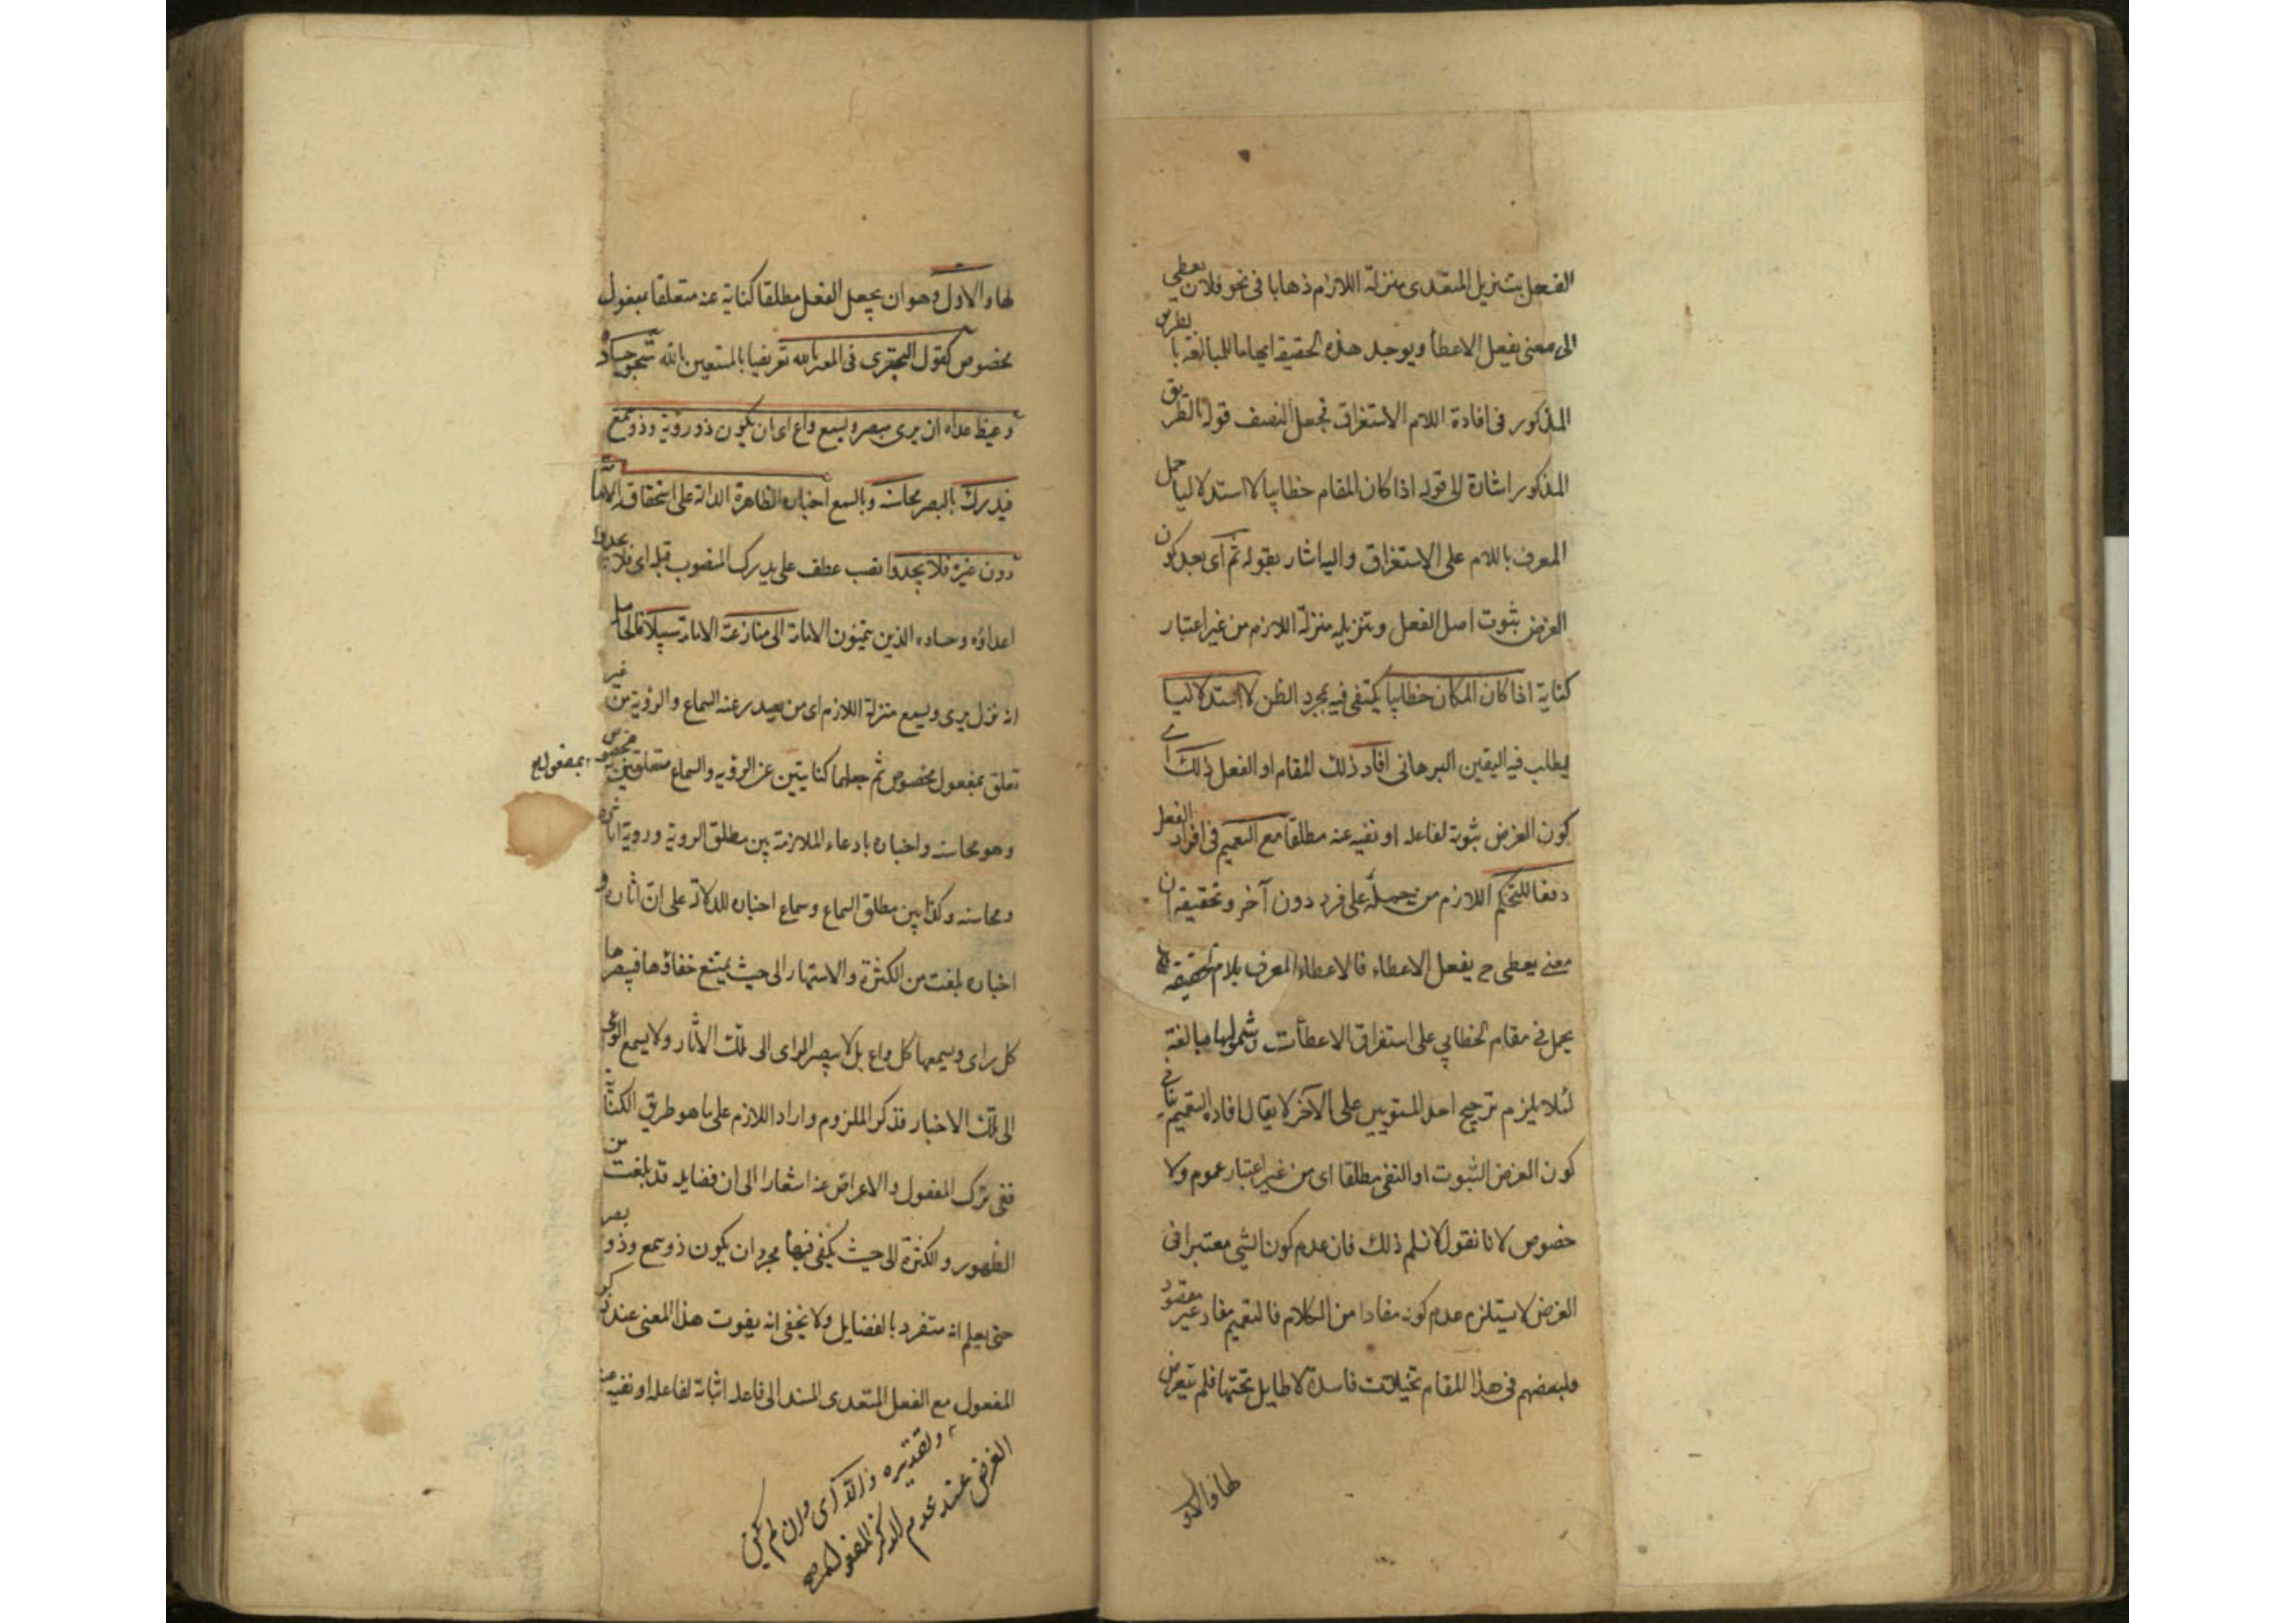 الفعل بتنزيل المتعدى منزلة اللازم ذهابا فى نحو فلان يعطى
الى معنى يفعل الاعطأ ويوجد هذه الحقيقة ايهاما للمبالغة با لطريق
المذكور فى افادة اللام الاستغراق فجعل المصنف قوله بالطريق
المذكور اشارة الى قوله اذا كان المقام خطابيا لا استدلاليا حمل
المعرف باللام على الاستغراق واليه اشار بقوله ثم اى بعد كون
الغرض ثبوت اصل الفعل وتنزيله منزلة اللازم من غير اعتبار
كناية اذا كان المكان خطابيا يكتفى فيه بمجرد الظن لا استدلاليا
يطلب فيه اليقين البرهانى افاد ذلك المقام او الفعل ذلك اى
كون الغرض ثبوته لفاعله او نفيه عنه مطلقا مع التعميم فى افراد الفعل
دفعا للتحكم اللازم من حمله على فرد دون آخر وتحقيقه ان
معنى يعطى ح يفعل الاعطاء فالاعطاء المعرف بلام الحقيقة
يحمل فى مقام الخطابى على استغراق الاعطأت وشمولها مبالغة
لئلا يلزم ترجيح احد المتساويين على الآخر لا يقال افادة التعميم ينافى
كون الغرض الثبوت او النفى مطلقا اى من غير اعتبار عموم ولا
خصوص لانا نقول لا نسلم ذلك فان عدم كون الشى معتبرا فى
الغرض لا يستلزم عدم كونه مفادا من الكلام فالتعميم مفاد غير مقصود
ولبعضهم فى هذا المقام تخيلات فاسدة لا طايل تحتها فلم نتعرض
لها والاول
لها والاول وهو ان يجعل الفعل مطلقا كناية عنه متعلقا بمفعول
مخصوص كقول البحترى فى المعتز بالله تعريضا بالمستعين بالله شجو حساده
وغيظ عداه ان يرى مبصر ويسمع واع اى ان يكون ذو رؤية وذو سمع
فيدرك بالبصر محاسنه وبالسمع اخباره الظاهرة الدالة على استحقاقه الامامة
دون غيره فلا يجدوا نصب عطف على يدرك المنصوب قبله اى فلا يجدوا
اعداؤه وحساده الذين يتمنون الامامة الى منازعته الامامة سبيلا فالحاصل
انه نزل يرى ويسمع منزلة اللازم اى من يصدر عنه السماع والرؤية من غير
تعلق بمفعول مخصوص ثم جعلهما كنايتين عن الرؤيه والسماع متعلقين بمفعول مخصوص
وهو محاسنه واخباره بادعاء الملازمة بين مطلق الروية وروية اثاره
ومحاسنه وكذا بين مطلق السماع وسماع اخباره للدلالة على ان اثاره و
اخباره بلغت من الكثرة والاشتهار الى حيث يمتنع خفاؤها فيبصرها
كل راى ويسمعها كل واع بل لا يبصر الراى الى تلك الآثار ولا يسمع الواعى
الى تلك الاخبار فذكر الملزوم واراد اللازم على ما هو طريق الكناية
ففى ترك المفعول والاعراض عنه اشعارا الى ان فضايله قد بلغت من
الظهور والكثرة الى حيث يكفى فيها مجرد ان يكون ذو سمع وذو بصر
حتى يعلم انه متفرد بالفضايل ولا يخفى انه يفوت هذا المعنى عند ذكر
المفعول مع الفعل المتعدى المسند الى فاعله اثباته لفاعله او نفيه عنه
وتقديره والا اى وان لم يكن
الغرض عند عدم الذكر المفعول مع